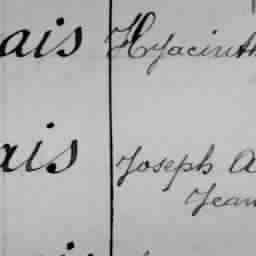 ais Hyacinth
ais Joseph A
Jean